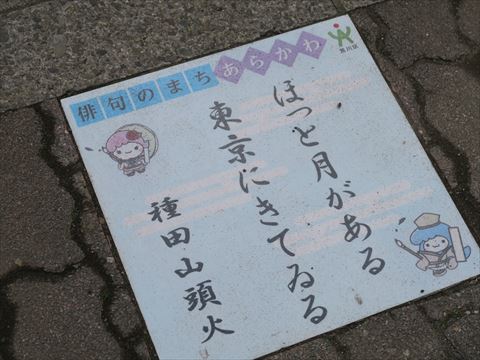 俳句のまちあらかわ
荒川区
ほっと月がある
東京にきてゐる
種田山頭火